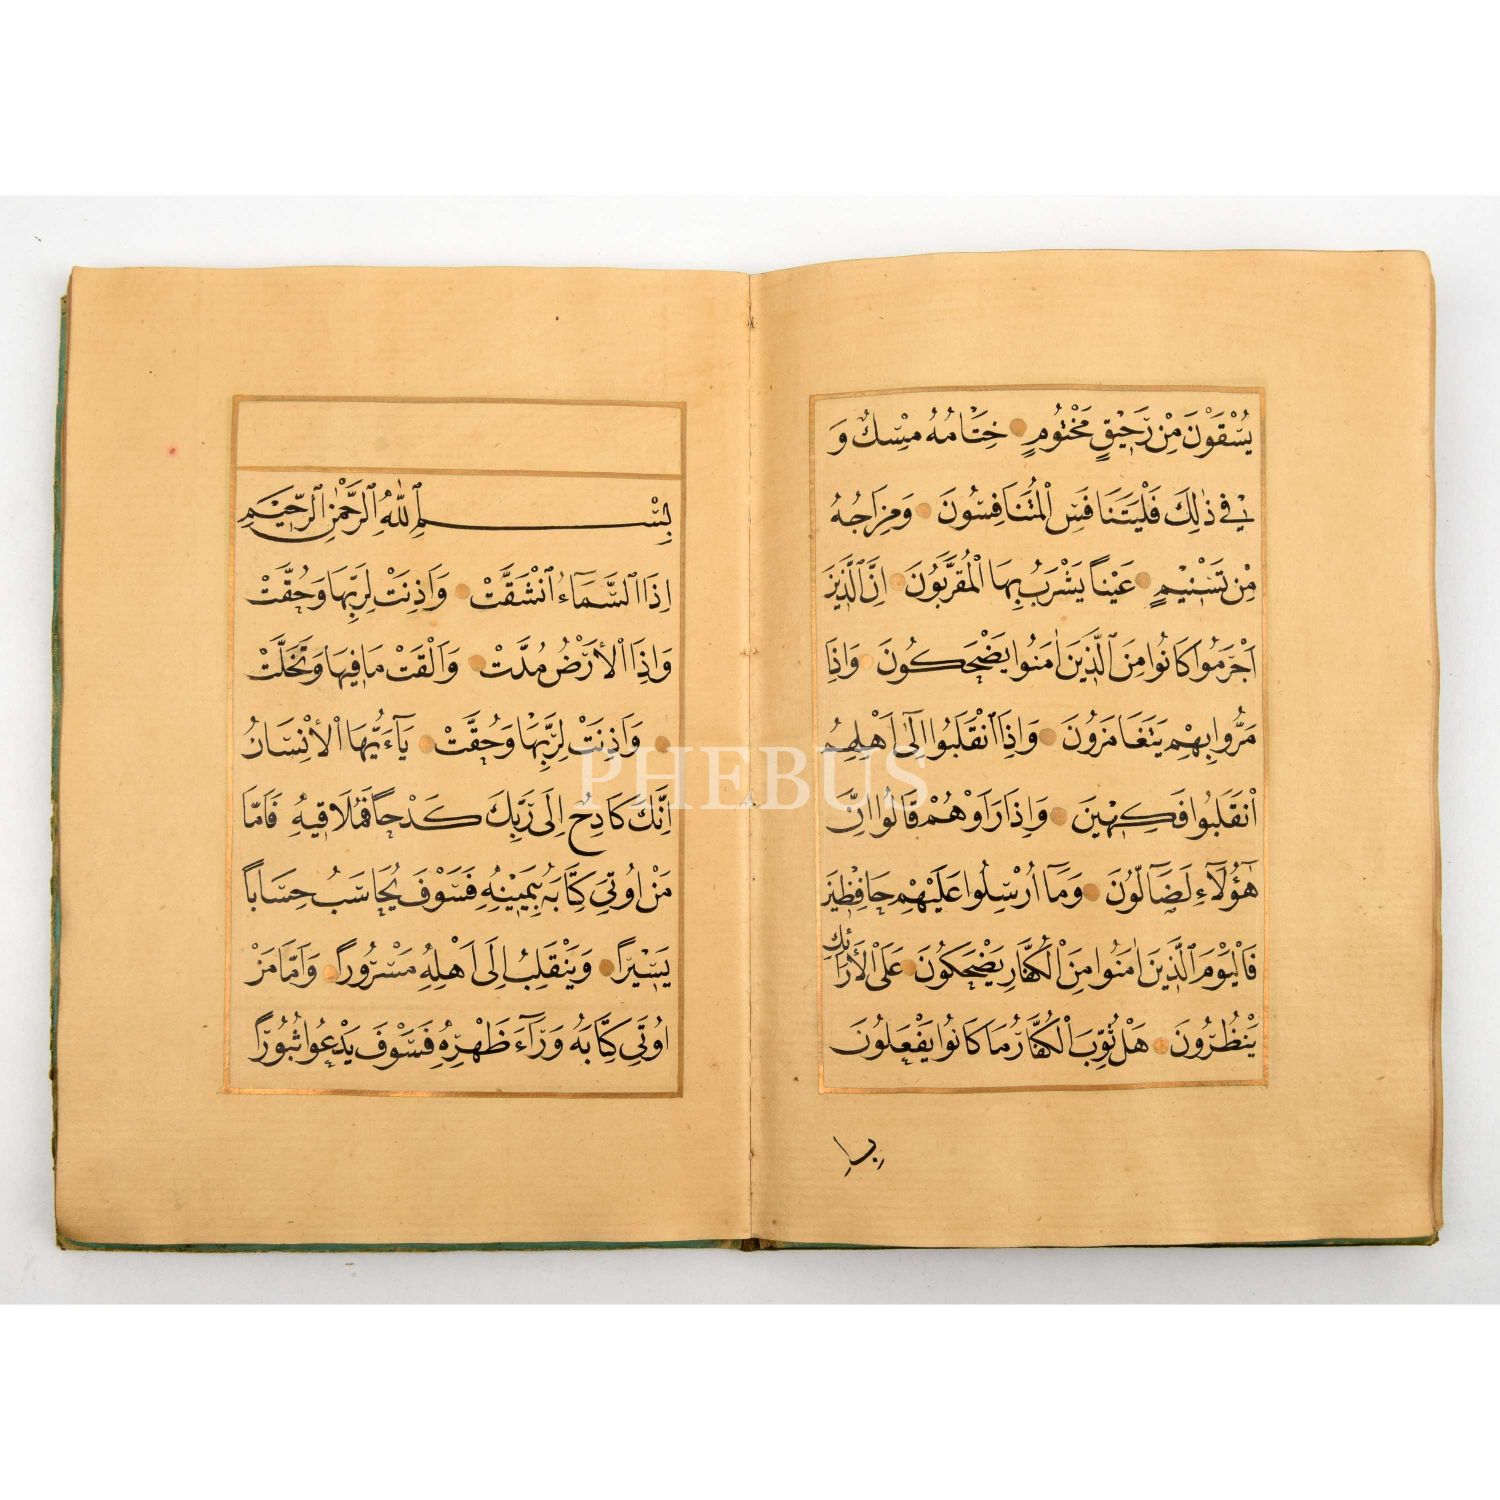 يُسْقَوْنَ مِنْ رَحِيقٍ مَخْتُومٍ خِتَامُهُ مِسْكٌ وَ
فِي ذٰلِكَ فَلْيَتَنَافَسِ الْمُتَنَافِسُونَ وَمِزَاجُهُ
مِنْ تَسْنِيمٍ عَيْنًا يَشْرَبُ بِهَا الْمُقَرَّبُونَ اِنَّ الَّذِينَ
اَجْرَمُوا كَانُوا مِنَ الَّذِينَ اٰمَنُوا يَضْحَكُونَ وَاِذَا
مَرُّوا بِهِمْ يَتَغَامَزُونَ وَاِذَا انْقَلَبُوا اِلٰى اَهْلِهِمُ
انْقَلَبُوا فَكِهِينَ وَاِذَا رَاَوْهُمْ قَالُوا اِنَّ
هٰؤُلَاءِ لَضَالُّونَ وَمَا اُرْسِلُوا عَلَيْهِمْ حَافِظِينَ
فَالْيَوْمَ الَّذِينَ اٰمَنُوا مِنَ الْكُفَّارِ يَضْحَكُونَ عَلَى الْاَرَائِكِ
يَنْظُرُونَ هَلْ ثُوِّبَ الْكُفَّارُ مَا كَانُوا يَفْعَلُونَ
بِسْمِ اللّٰهِ الرَّحْمٰنِ الرَّحِيمِ
اِذَا السَّمَاءُ انْشَقَّتْ وَاَذِنَتْ لِرَبِّهَا وَحُقَّتْ
وَاِذَا الْاَرْضُ مُدَّتْ وَاَلْقَتْ مَا فِيهَا وَتَخَلَّتْ
وَاَذِنَتْ لِرَبِّهَا وَحُقَّتْ يَاءَيُّهَا الْاِنْسَانُ
اِنَّكَ كَادِحٌ اِلٰى رَبِّكَ كَدْحًا فَمُلَاقِيهِ فَاَمَّا
مَنْ اُوتِيَ كِتَابَهُ بِيَمِينِهِ فَسَوْفَ يُحَاسَبُ حِسَابًا
يَسِيرًا وَيَنْقَلِبُ اِلٰى اَهْلِهِ مَسْرُورًا وَاَمَّا مَنْ
اُوتِيَ كِتَابَهُ وَرَاءَ ظَهْرِهِ فَسَوْفَ يَدْعُوا ثُبُورًا
PHEBUS